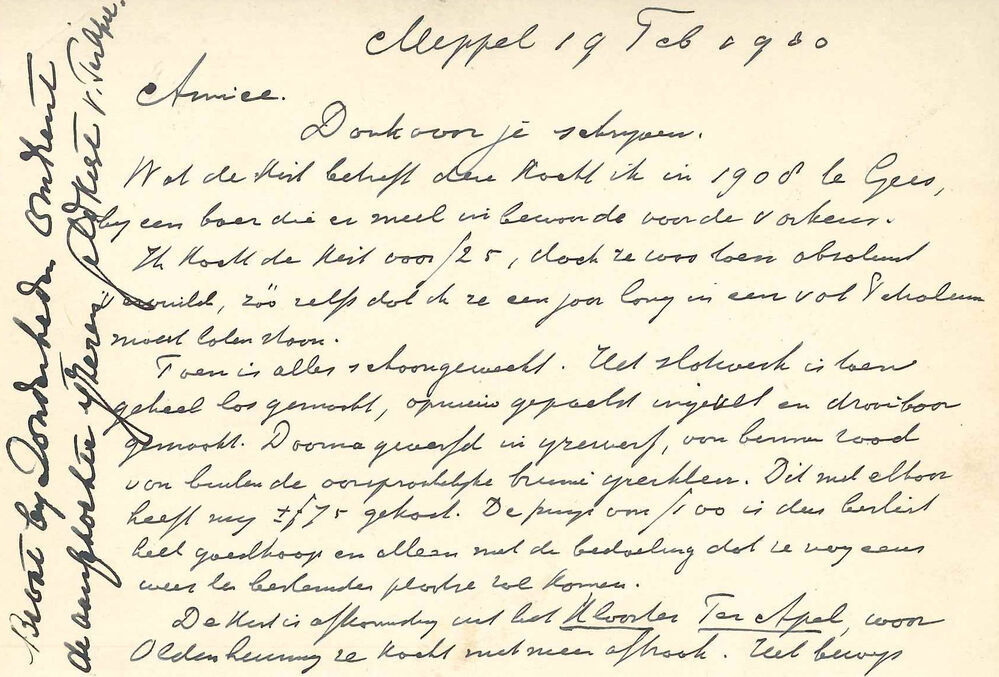 Meppel 19 Feb 1930
Amice.
Dank voor je schrijven.
Wat de kist betreft deze kocht ik in 1908 te Gees,
by een boer die er meel in bewaarde voor de varkens.
Ik kocht de kist voor f 25, doch ze was toen absoluut
vervuild, zóó zelfs dat ik ze een jaar lang in een vat
moest laten staan.
Toen is alles schoongemaakt. Het slotwerk is toen
geheel los gemaakt, opnieuw gepast ingevet en draaibaar
gemaakt. Daarna geverfd in yzerverf, van binnen rood
van buiten de oorspronkelijke bruine yzerkleur. Dit met elkaar
heeft my ± f 75 gekost. De prys van f 100 is dus beslist
heel goedkoop en alleen met de bedoeling dat ze nog eens
weer ter bestemder plaatse zal komen.
De kist is afkomstig uit het Klooster Ter Apel, waar
Oldenhuning ze kocht met meer afbraak. Het bewys
Bevat by Zonderheden omtrent
de aangekochte yzeren geldkist v. Ter Apel.